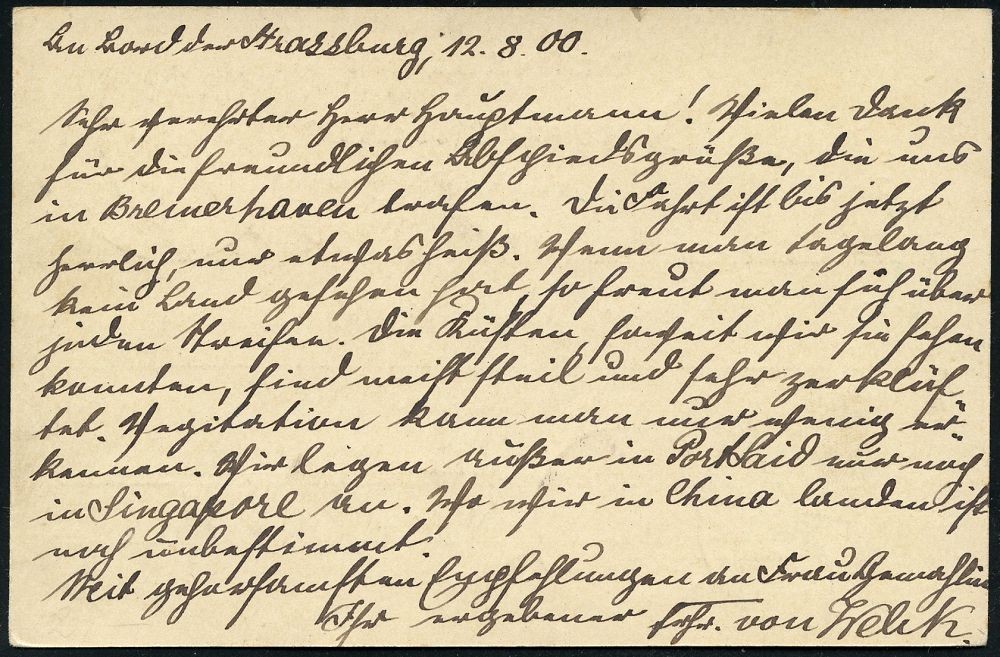 An Bord der Strassburg, 12. 8. 00.
Sehr verehrter Herr Hauptmann! Vielen Dank
für die freundlichen Abschiedsgrüße, die uns
in Bremerhaven trafen. Die Fahrt ist bis jetzt
herrlich, nur etwas heiß. Wenn man tagelang
kein Land gesehen hat, so freut man sich über
jeden Streifen. Die Küsten, soweit wir sie sehen
konnten, sind meist steil und sehr zerklüf-
tet. Vegitation kann man nur wenig er-
kennen. Wir legen außer in Port Said nur noch
in Singapore an. Wo wir in China landen ist
noch unbestimmt.
Mit gehorsamsten Empfehlungen an Frau Gemahlin
Ihr ergebener Frhr. von Welck.